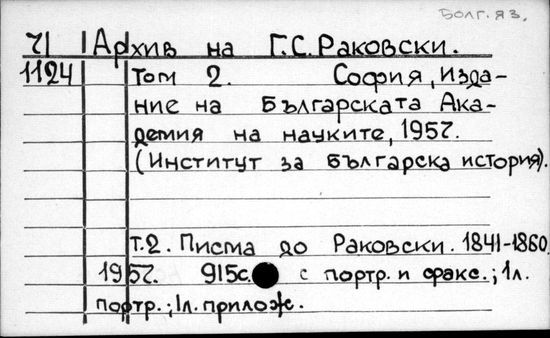 Болг. яз.
Ч Архив на Г.С.Раковски.
1124 Том 2. София, изда-
ние на Българската Ака-
демия на науките, 1957.
(Институт за българска история).
т.2. Писма до Раковски. 1841-1860
1957. 915с. с портр. и факс.; 1л.
портр.; 1л. прилож.